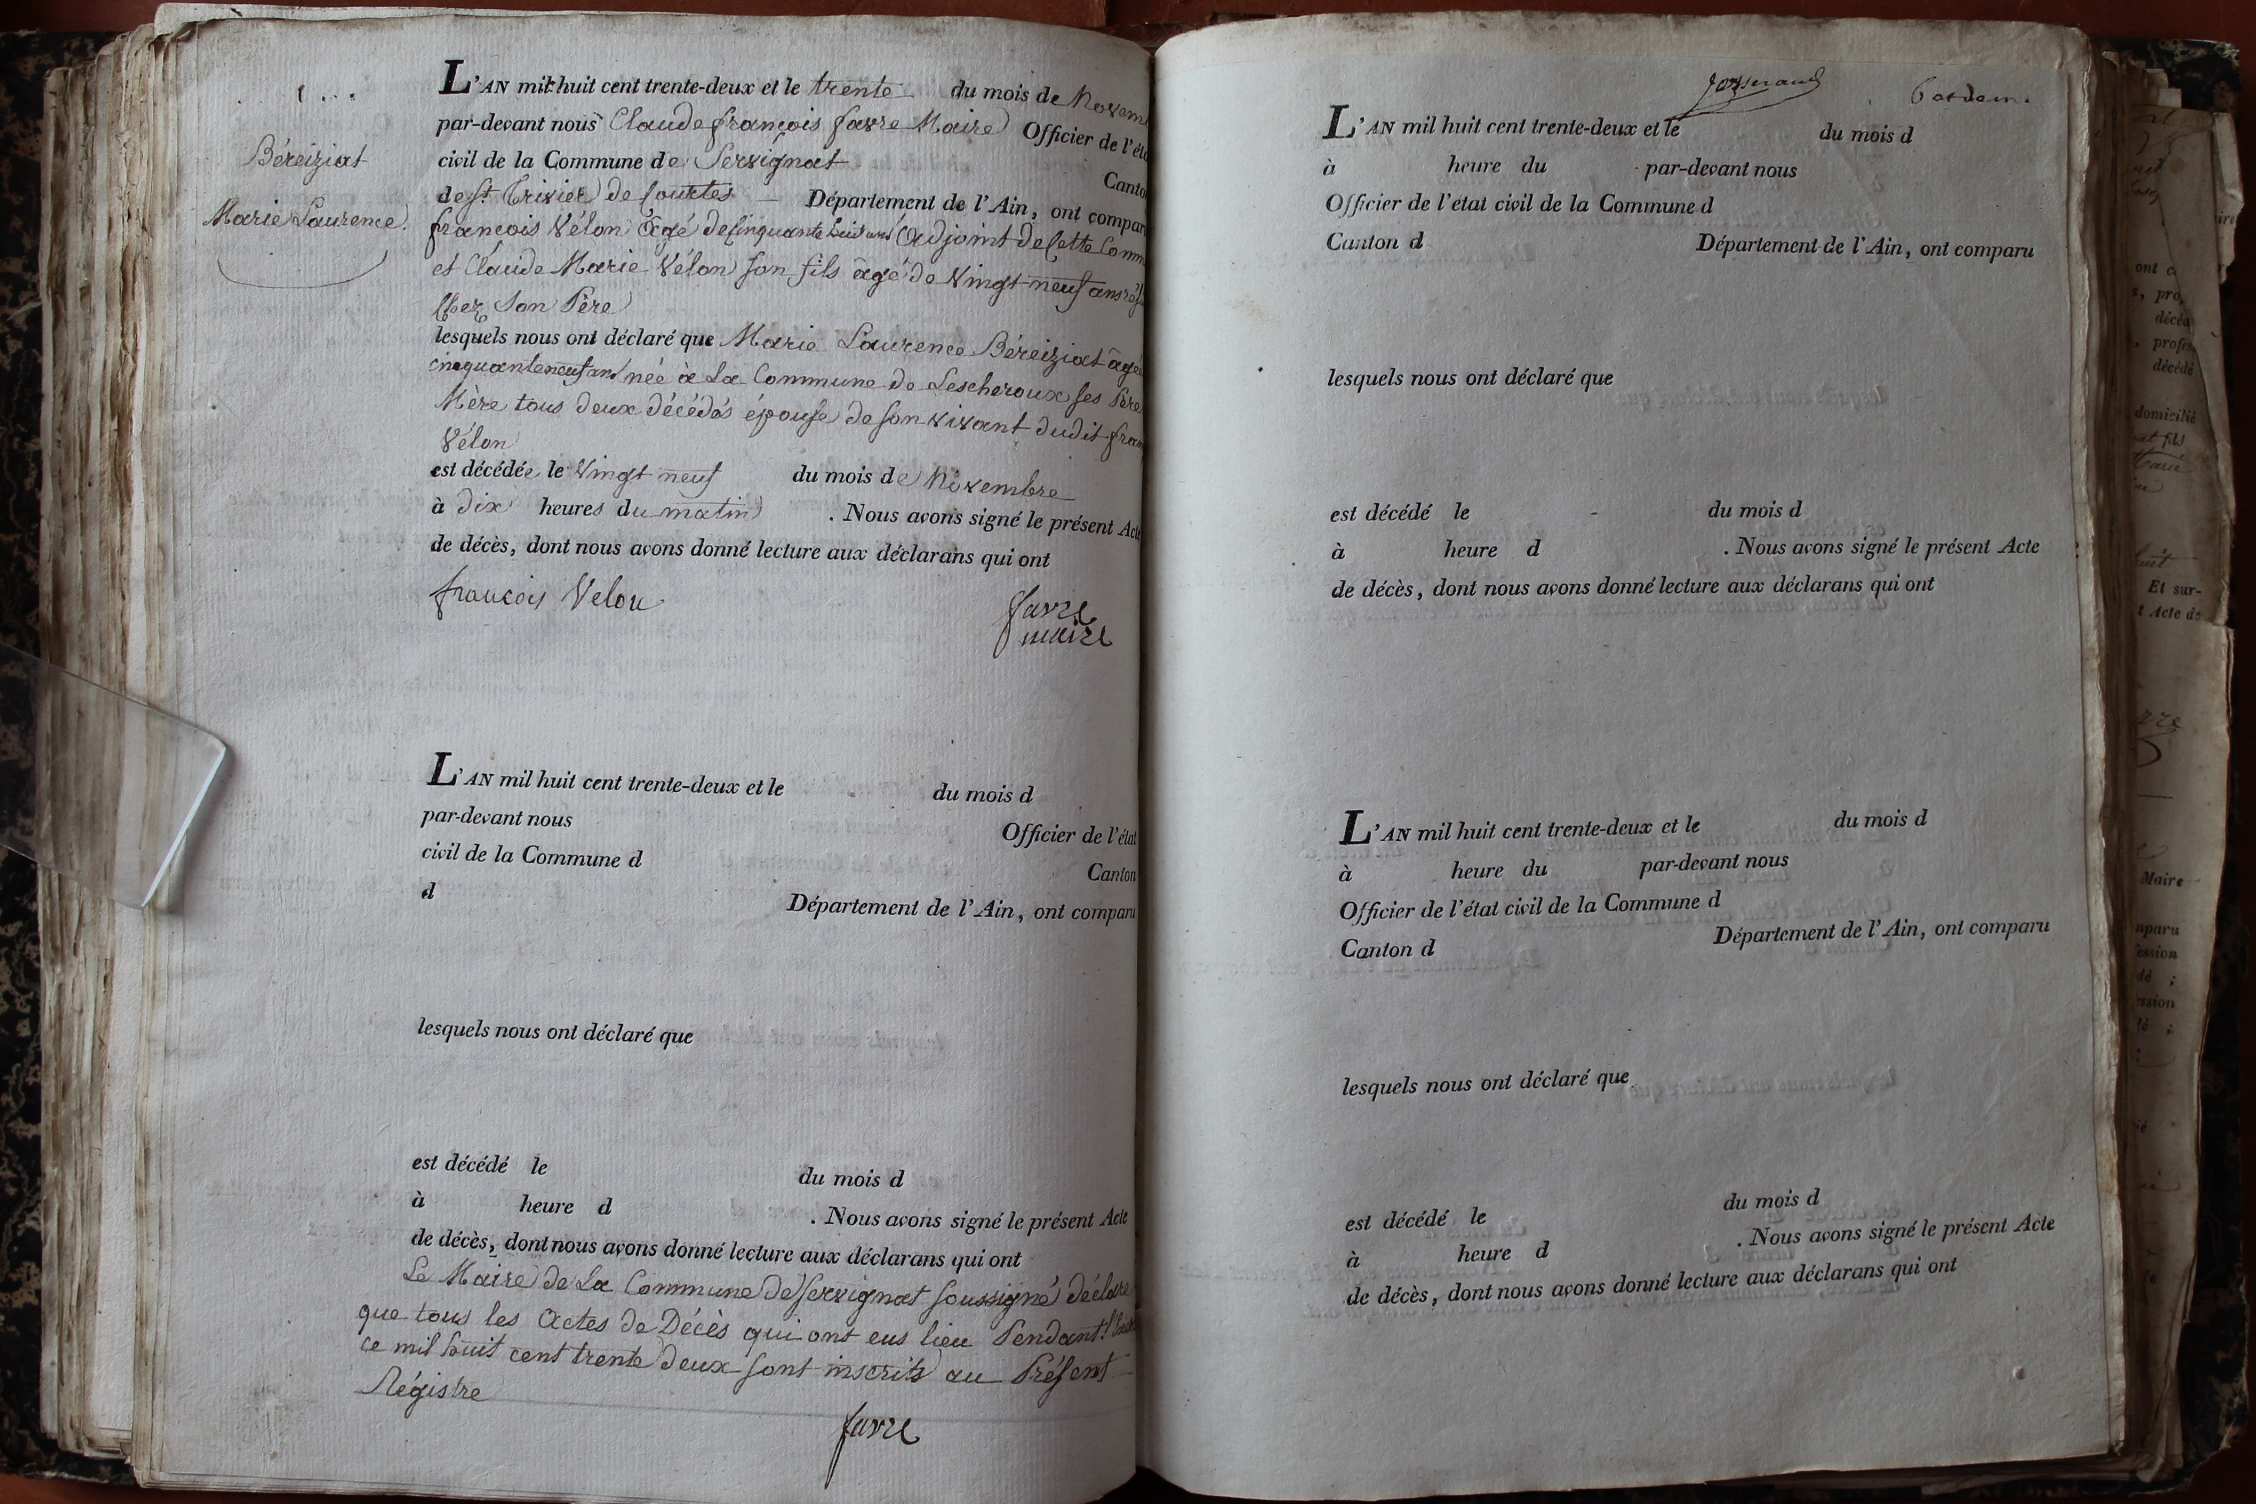 Béreiziat
Marie Laurence
L'AN mil huit cent trente-deux et le trente du mois de Novem
par-devant nous Claude françois favre Maire Officier de l'éta
civil de la Commune de Servignat Canto
de St Trivier de Courtes Département de l'Ain, ont compar
francois Vélon âgé de Cinquante huit ans Adjoint de Cette Comm
et Claude Marie Vélon son fils âgé de Vingt neuf ans
Chez Son Père
lesquels nous ont déclaré que Marie Laurence Béreiziat âgé
cinquante neuf ans née à La Commune de Lescheroux ses Père
Mère tous deux décédés épouse de son vivant dudit fran
Vélon
est décédée le Vingt neuf du mois de Novembre
à dix heures du matin . Nous avons signé le présent Acte
de décès, dont nous avons donné lecture aux déclarans qui ont
francois Velon
favre
maire
L'AN mil huit cent trente-deux et le du mois d
par-devant nous Officier de l'état
civil de la Commune d Canton
d Département de l'Ain, ont comparu
lesquels nous ont déclaré que
est décédé le du mois d
à heure d . Nous avons signé le présent Acte
de décès, dont nous avons donné lecture aux déclarans qui ont
Le Maire de La Commune de Servignat soussigné déclare
que tous les Actes de Décès qui ont eus lieu Pendant
ce mil huit cent trente deux sont inscrits au Présent
Régistre
favre
L'AN mil huit cent trente-deux et le du mois d
à heure du par-devant nous
Officier de l'état civil de la Commune d
Canton d Département de l'Ain, ont comparu
lesquels nous ont déclaré que
est décédé le du mois d
à heure d . Nous avons signé le présent Acte
de décès, dont nous avons donné lecture aux déclarans qui ont
L'AN mil huit cent trente-deux et le du mois d
à heure du par-devant nous
Officier de l'état civil de la Commune d
Canton d Département de l'Ain, ont comparu
lesquels nous ont déclaré que
est décédé le du mois d
à heure d . Nous avons signé le présent Acte
de décès, dont nous avons donné lecture aux déclarans qui ont
domicilié
Et sur-
t Acte de
Maire
mparu
ession
dé ;
ession